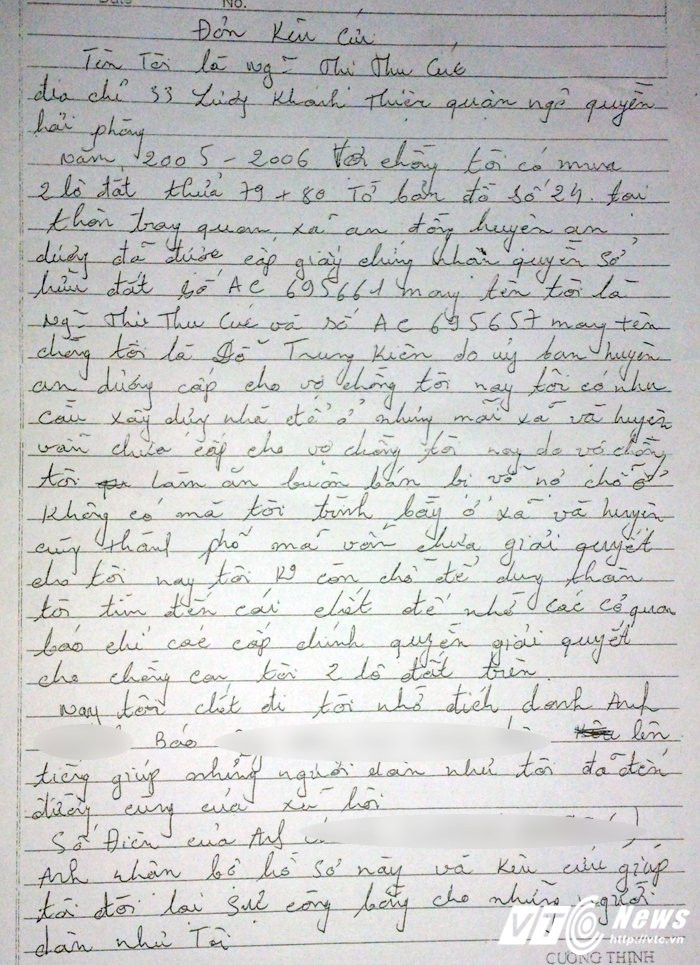 No.
Đơn Kêu Cứu
Tên Tôi là Ng~ Thị Thu Cúc
địa chỉ 33 Lương Khánh Thiện quận ngô quyền
hải phòng
Năm, 2005 - 2006 Vợ chồng tôi có mua
2 lô đất thửa 79 + 80 Tờ bản đồ số 24. tại
thôn trang quan xã an đồng huyện an
dương đã được cấp giấy chứng nhận quyền sở
hữu đất số AC 695661 mang tên tôi là
Ng~ Thị Thu Cúc và số AC 695657 mang tên
chồng tôi là Đỗ Trung Kiên do uỷ ban huyện
an dương cấp cho vợ chồng tôi nay tôi có nhu
cầu xây dựng nhà để ở nhưng mãi xã và huyện
vẫn chưa cấp cho vợ chồng tôi nay do vợ chồng
tôi làm ăn buôn bán bị vỡ nợ chỗ ở
không có mà tôi trình bầy ở xã và huyện
cùng thành phố mà vẫn chưa giải quyết
cho tôi nay tôi k9 còn chỗ để dung thân
tôi tìm đến cái chết để nhờ các cơ quan
báo chí các cấp chính quyền giải quyết
cho chồng con tôi 2 lô đất trên.
Nay tôi chết đi tôi nhờ đích danh Anh
Báo lên
tiếng giúp những người dân như tôi đã đến
đường cùng của xã hội
Số Điện của Anh
Anh nhận bộ hồ sơ này và kêu cứu giúp
tôi đòi lại sự công bằng cho những người
dân như Tôi
VTC News
http://vtc.vn
CUONG THINH